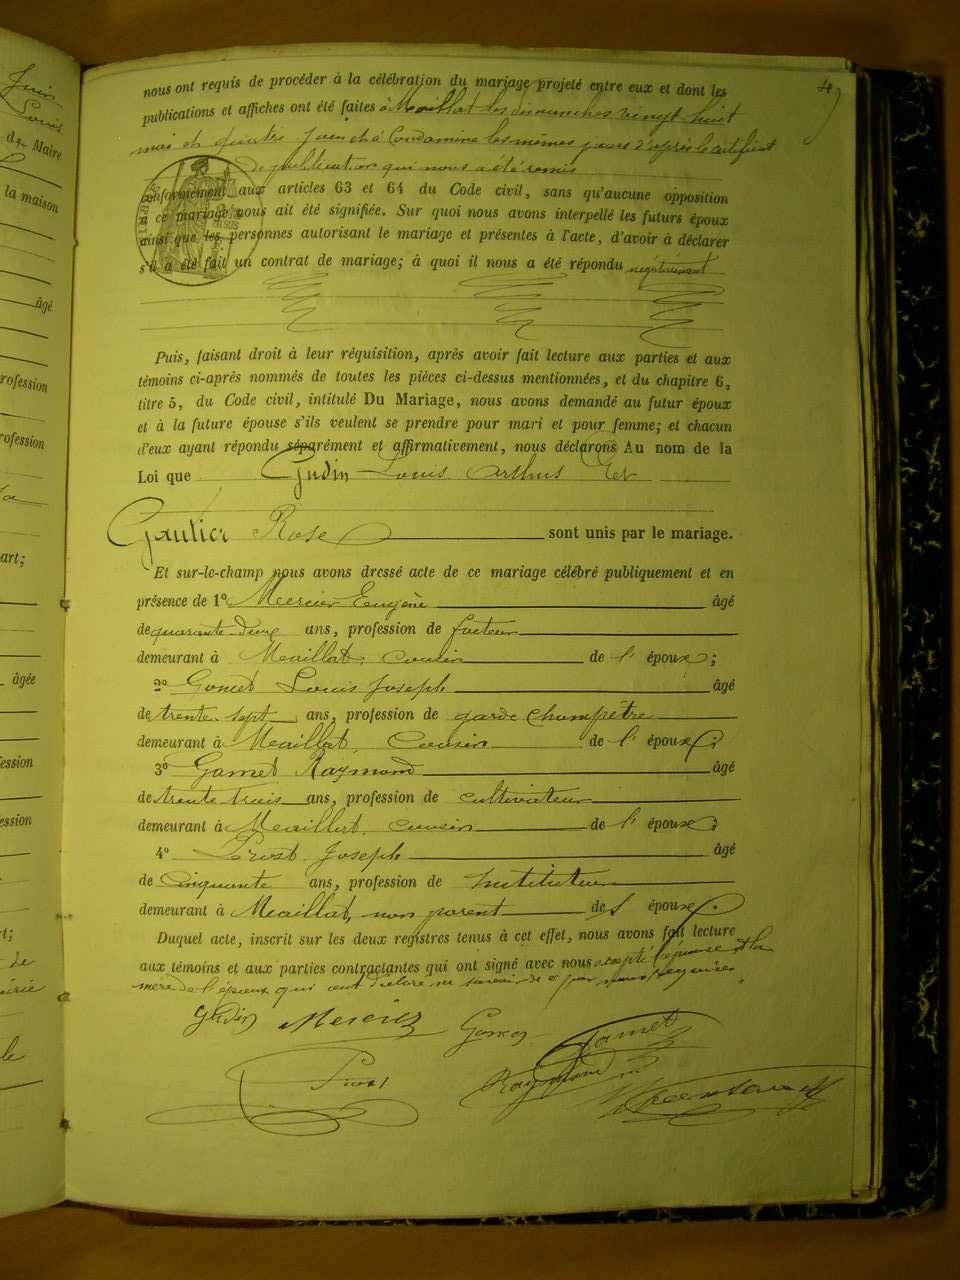 Juin
Louis
de Maire
la maison
âgé
profession
profession
part;
âgée
profession
profession
t;
de
mairie
le
4
nous ont requis de procéder à la célébration du mariage projeté entre eux et dont les
publications et affiches ont été faites à Maillat les dimanches vingt huit
mai et quatre Juin et à Condamine les mêmes jours d'après le certificat
de publication qui nous a été remis
conformement aux articles 63 et 64 du Code civil, sans qu'aucune opposition
à ce mariage nous ait été signifiée. Sur quoi nous avons interpellé les futurs époux
ainsi que les personnes autorisant le mariage et présentes à l'acte, d'avoir à déclarer
s'il a été fait un contrat de mariage; à quoi il nous a été répondu négativement
Puis, faisant droit à leur réquisition, après avoir fait lecture aux parties et aux
témoins ci-après nommés de toutes les pièces ci-dessus mentionnées, et du chapitre 6,
titre 5, du Code civil, intitulé Du Mariage, nous avons demandé au futur époux
et à la future épouse s'ils veulent se prendre pour mari et pour femme; et chacun
d'eux ayant répondu séparément et affirmativement, nous déclarons Au nom de la
Loi que Gudin Louis Arthus Et
Gautier Rose sont unis par le mariage.
Et sur-le-champ nous avons dressé acte de ce mariage célébré publiquement et en
présence de 1º Mercier Eugène âgé
de quarante deux ans, profession de facteur
demeurant à Maillat, cousin de l' époux;
2º Gomet Louis Joseph âgé
de trente sept ans, profession de garde champêtre
demeurant à Maillat, Cousin de l' épouse;
3º Gamet Raymond âgé
de trente trois ans, profession de cultivateur
demeurant à Maillat, cousin de l' épouse;
4º Prost Joseph âgé
de Cinquante ans, profession de Instituteur
demeurant à Maillat, non parent de l' épouse.
Duquel acte, inscrit sur les deux registres tenus à cet effet, nous avons fait lecture
aux témoins et aux parties contractantes qui ont signé avec nous excepté l'épouse et la
mère de l'époux qui ont déclaré ne savoir de ce par nous requises
Gudin Mercier Gomet Gamet
Prost Raymond